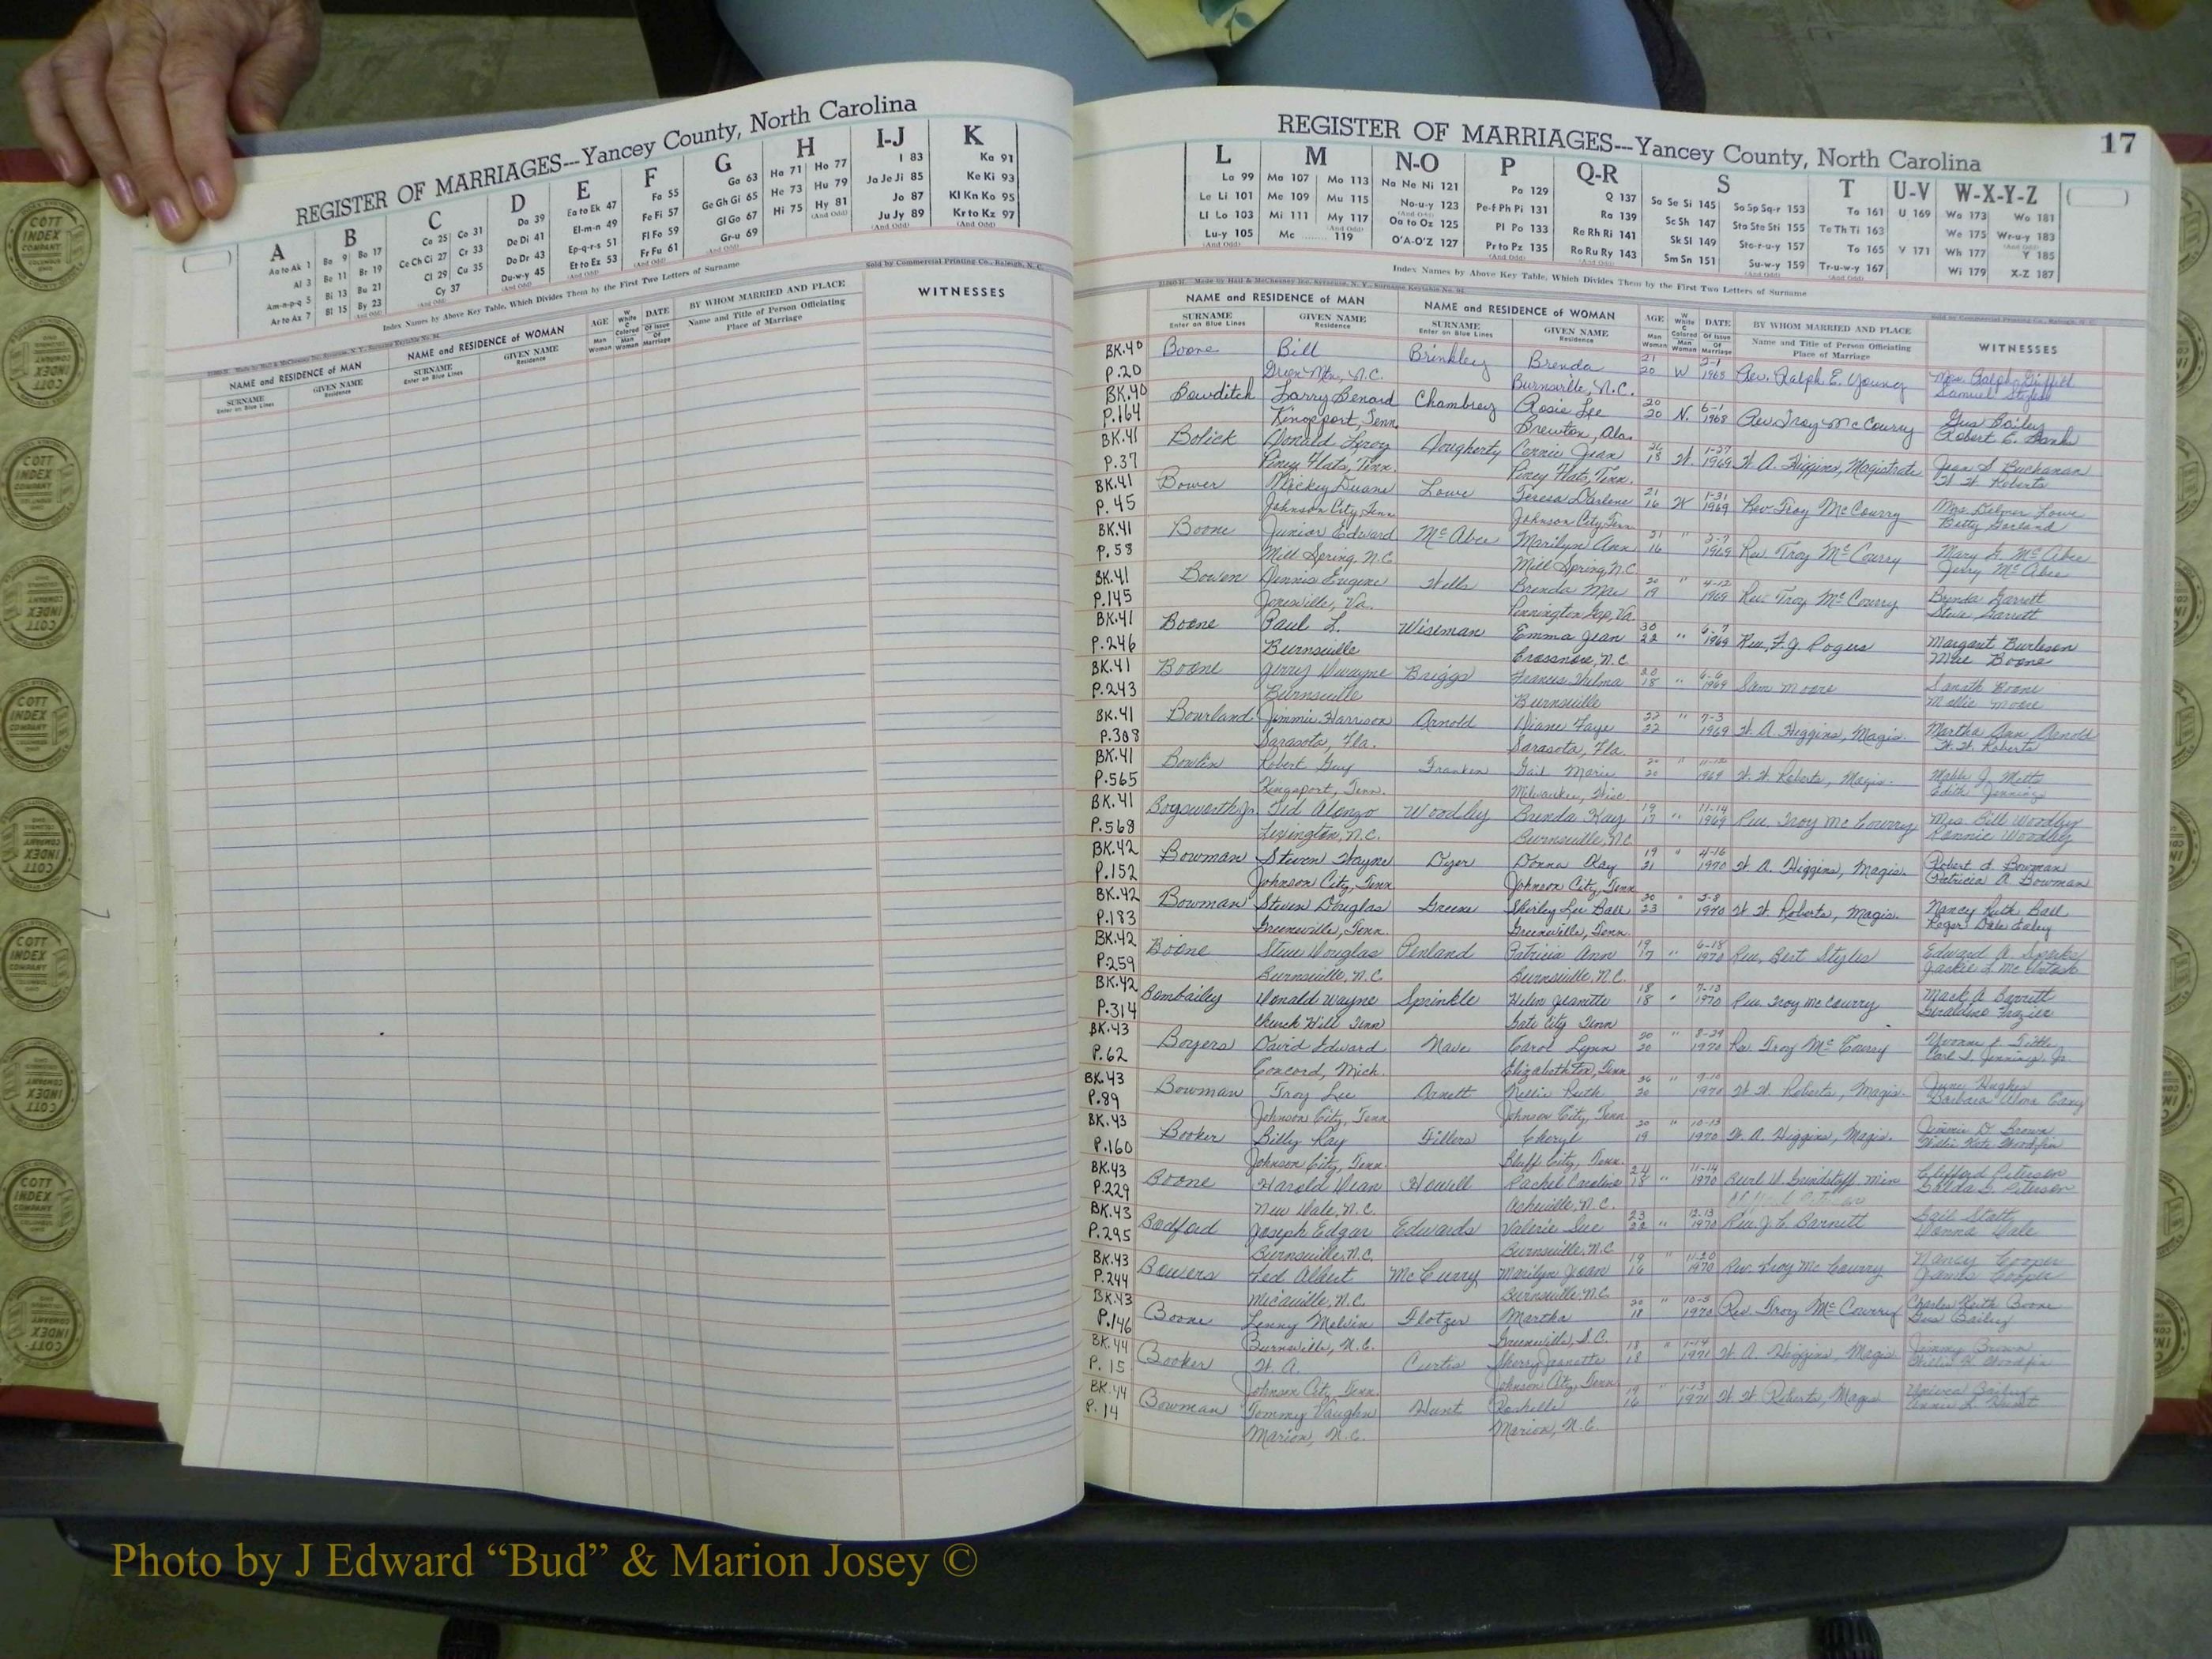 REGISTER OF MARRIAGES---Yancey County, North Carolina
A B C D E F G H I-J K
Aa to Ak 1 Ba 9 Bo 17 Ca 25 Co 31 Da 39 Ea to Ek 47 Fa 55 Ga 63 Ha 71 Ho 77 I 83 Ka 91
Al 3 Be 11 Br 19 Ce Ch Ci 27 Cr 33 De Di 41 El-m-n 49 Fe Fi 57 Ge Gh Gi 65 He 73 Hu 79 Ja Je Ji 85 Ke Ki 93
Am-n-p-q 5 Bi 13 Bu 21 Cl 29 Cu 35 Do Dr 43 Ep-q-r-s 51 Fl Fo 59 Gl Go 67 Hi 75 Hy 81 Jo 87 Kl Kn Ko 95
Ar to Az 7 Bl 15 By 23 Cy 37 Du-w-y 45 Et to Ez 53 Fr Fu 61 Gr-u 69 Ju Jy 89 Kr to Kz 97
Index Names by Above Key Table, Which Divides Them by the First Two Letters of Surname
Sold by Commercial Printing Co., Raleigh, N. C.
NAME and RESIDENCE of MAN NAME and RESIDENCE of WOMAN AGE W White C Colored DATE BY WHOM MARRIED AND PLACE WITNESSES
SURNAME Enter on Blue Lines GIVEN NAME Residence SURNAME Enter on Blue Lines GIVEN NAME Residence Man Woman Man Woman Of Issue Of Marriage Name and Title of Person Officiating Place of Marriage
REGISTER OF MARRIAGES---Yancey County, North Carolina 17
L M N-O P Q-R S T U-V W-X-Y-Z
La 99 Ma 107 Mo 113 Na Ne Ni 121 Pa 129 Q 137 Sa Se Si 145 So Sp Sq-r 153 Ta 161 U 169 Wa 173 Wo 181
Le Li 101 Me 109 Mu 115 No-u-y 123 Pe-f Ph Pi 131 Ra 139 Sc Sh 147 Sta Ste Sti 155 Te Th Ti 163 We 175 Wr-u-y 183
Ll Lo 103 Mi 111 My 117 Oa to Oz 125 Pl Po 133 Re Rh Ri 141 Sk Sl 149 Sto-r-u-y 157 To 165 V 171 Wh 177 Y 185
Lu-y 105 Mc 119 O'A-O'Z 127 Pr to Pz 135 Ro Ru Ry 143 Sm Sn 151 Su-w-y 159 Tr-u-w-y 167 Wi 179 X-Z 187
Index Names by Above Key Table, Which Divides Them by the First Two Letters of Surname
NAME and RESIDENCE of MAN NAME and RESIDENCE of WOMAN AGE W White C Colored DATE BY WHOM MARRIED AND PLACE WITNESSES
SURNAME Enter on Blue Lines GIVEN NAME Residence SURNAME Enter on Blue Lines GIVEN NAME Residence Man Woman Man Woman Of Issue Of Marriage Name and Title of Person Officiating Place of Marriage
BK.40 Boone Bill Brinkley Brenda 21 2-1
P.20 N.C. Burnsville, N.C. 20 W Rev. Ralph E. Young Samuel Styles
BK.40 Bowditch Larry Chambrey Rosie Lee 20 6-1 Gus Bailey
P.164 Kingsport, Tenn. Brewton, Ala. 20 N. 1968 Rev. Troy McCourry Robert E.
BK.41 Bolick Donald Leroy Dougherty Connie Jean 1-27 Jean S. Buchanan
P.37 Piney Flats, Tenn. Piney Flats, Tenn. W. 1969 W. A. Higgins, Magistrate W. W. Roberts
BK.41 Bower Mickey Duane Lowe Teresa Darlene 21 1-31 Mrs. Delmer Lowe
P.45 Johnson City, Tenn Johnson City, Tenn 16 W 1969 Rev. Troy McCourry Betty Garland
BK.41 Boone Junior Edward McAbee Marilyn Ann 21 2-7 Mary G. McAbee
P.58 Mill Spring, N.C. Mill Spring, N.C. 16 " 1969 Rev. Troy McCourry Jerry McAbee
BK.41 Bowen Dennis Eugene Wells Brenda Mae 20 4-12 Brenda Garrett
P.145 Jonesville, Va. Pennington Gap, Va. 19 " 1969 Rev. Troy McCourry Steve Garrett
BK.41 Boone Paul L. Wiseman Emma Jean 30 6-7 Margaret Burleson
P.246 Burnsville Crossnore, N.C. 22 " 1969 Rev. F.G. Rogers Boone
BK.41 Boone Jerry Dwayne Briggs Frances Thelma 20 6-6 Boone
P.243 Burnsville Burnsville 18 " 1969 Sam Moore Mollie Moore
BK.41 Bourland Jimmie Harrison Arnold Diane Faye 22 7-3 Martha Ann Arnold
P.308 Sarasota, Fla. Sarasota, Fla. 22 " 1969 W. A. Higgins, Magis. W. W. Roberts
BK.41 Robert Guy Franken Gail Marie 20
P.565 Kingsport, Tenn. Milwaukee, Wisc. 20 " 1969 W. W. Roberts, Magis. Edith Jennings
BK.41 Ted Alonzo Woodley Brenda Kay 19 11-14 Mrs. Bill Woodley
P.568 Lexington, N.C. Burnsville, N.C. 17 " 1969 Rev. Troy McCourry Ronnie Woodley
BK.42 Bowman Steven Wayne Dyer Donna Kay 19 4-16 Robert d. Bowman
P.152 Johnson City, Tenn Johnson City, Tenn 21 " 1970 W. A. Higgins, Magis. Patricia A. Bowman
BK.42 Bowman Steven Douglas Greene Shirley Lee Ball 20 Nancy Ruth Ball
P.183 Greeneville, Tenn. Greeneville, Tenn. 23 " 1970 W. W. Roberts, Magis. Roger Dale Ealey
BK.42 Boone Steve Douglas Penland Patricia Ann 19 6-18 Edward A. Sparks
P.259 Burnsville, N.C. Burnsville, N.C. 17 " 1970 Rev. Bert Styles Jackie L. McIntosh
BK.42 Bombailey Donald Wayne Sprinkle Helen Jeanette 18 7-13 Mack A Barrett
P.314 Church Hill Tenn Gate City Tenn 18 " 1970 Rev. Troy McCourry Geraldine Frazier
BK.43 Boyers David Edward Nave Carol Lynn 20 8-29
P.62 Concord, Mich. Elizabethton, Tenn 20 " 1970 Rev. Troy McCourry Carl S. Jennings, Jr.
BK.43 Bowman Troy Lee Arnett Nellie Ruth 26 9-10 June Hughes
P.89 Johnson City, Tenn Johnson City, Tenn. 20 " 1970 W. W. Roberts, Magis. Barbara
BK.43 Booker Billy Ray Fillers Cheryl 20 10-13 Jimmie D. Brown
P.160 Johnson City, Tenn. Bluff City, Tenn. 19 " 1970 W. A. Higgins, Magis. Willie Kate Woodfin
BK.43 Boone Harold Dean Howell Rachel Caroline 24 11-14 Clifford Peterson
P.229 New Dale, N.C. Asheville, N.C. 18 " 1970 Burl W. Grindstaff Min Peterson
BK.43 Bodford Joseph Edgar Edwards Valerie Sue 23 12-13 Gail Stott
P.295 Burnsville, N.C. Burnsville, N.C. 22 " 1970 Rev. J. C. Barnett Donna Dale
BK.43 Bowers Ted Albert McCurry Marilyn Jean 19 11-20 Nancy Cooper
P.244 Micaville, N.C. Burnsville, N.C. 16 " 1970 Rev. Troy McCourry James Cooper
BK.43 Boone Lenny Melvin Flotzer Martha 20 10-3 Charles Keith Boone
P.146 Burnsville, N.C. Greenville, S.C. 18 " 1970 Rev. Troy McCourry Gus Bailey
BK.44 Booker W. A. Curtis Sherry Jeanette 18 1-14 Jimmy Brown
P.15 Johnson City, Tenn. Johnson City, Tenn. 18 " 1971 W. A. Higgins, Magis Woodfin
BK.44 Bowman Tommy Vaughn Hunt Rochelle 19 1-13
P.14 Marion, N.C. Marion, N.C. 16 " 1971 W. W. Roberts, Magis
Photo by J Edward “Bud” & Marion Josey ©
COTT INDEX COMPANY